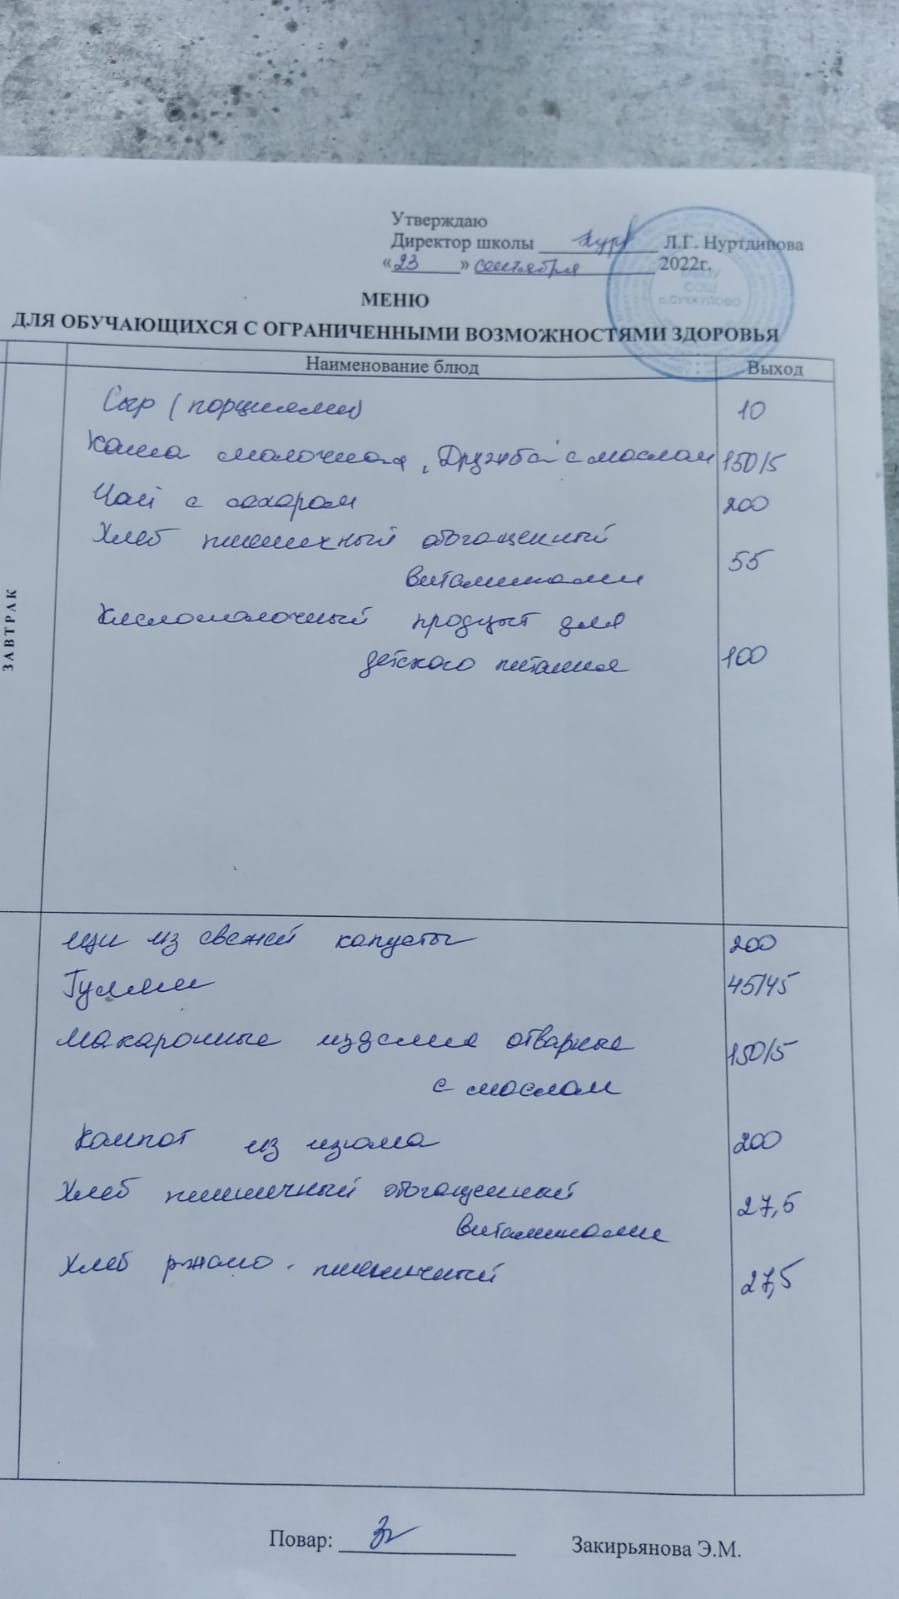 Утверждаю
Директор школы Л.Г. Нуртдинова
«23» сентября 2022г.
СОШ
с.СУККУЛОВО
МЕНЮ
ДЛЯ ОБУЧАЮЩИХСЯ С ОГРАНИЧЕННЫМИ ВОЗМОЖНОСТЯМИ ЗДОРОВЬЯ
Наименование блюд Выход
ЗАВТРАК
Сыр (порциями) 10
Каша молочная „Дружба" с маслом 150/5
Чай с сахаром 200
Хлеб пшеничный обогащенный
витаминами 55
Кисломолочный продукт для
детского питания 100
Щи из свежей капусты 200
Гуляш 45/45
Макаронные изделия отварные
с маслом 150/5
Компот из изюма 200
Хлеб пшеничный обогащенный
витаминами 27,5
Хлеб ржано-пшеничный 27,5
Повар: Закирьянова Э.М.